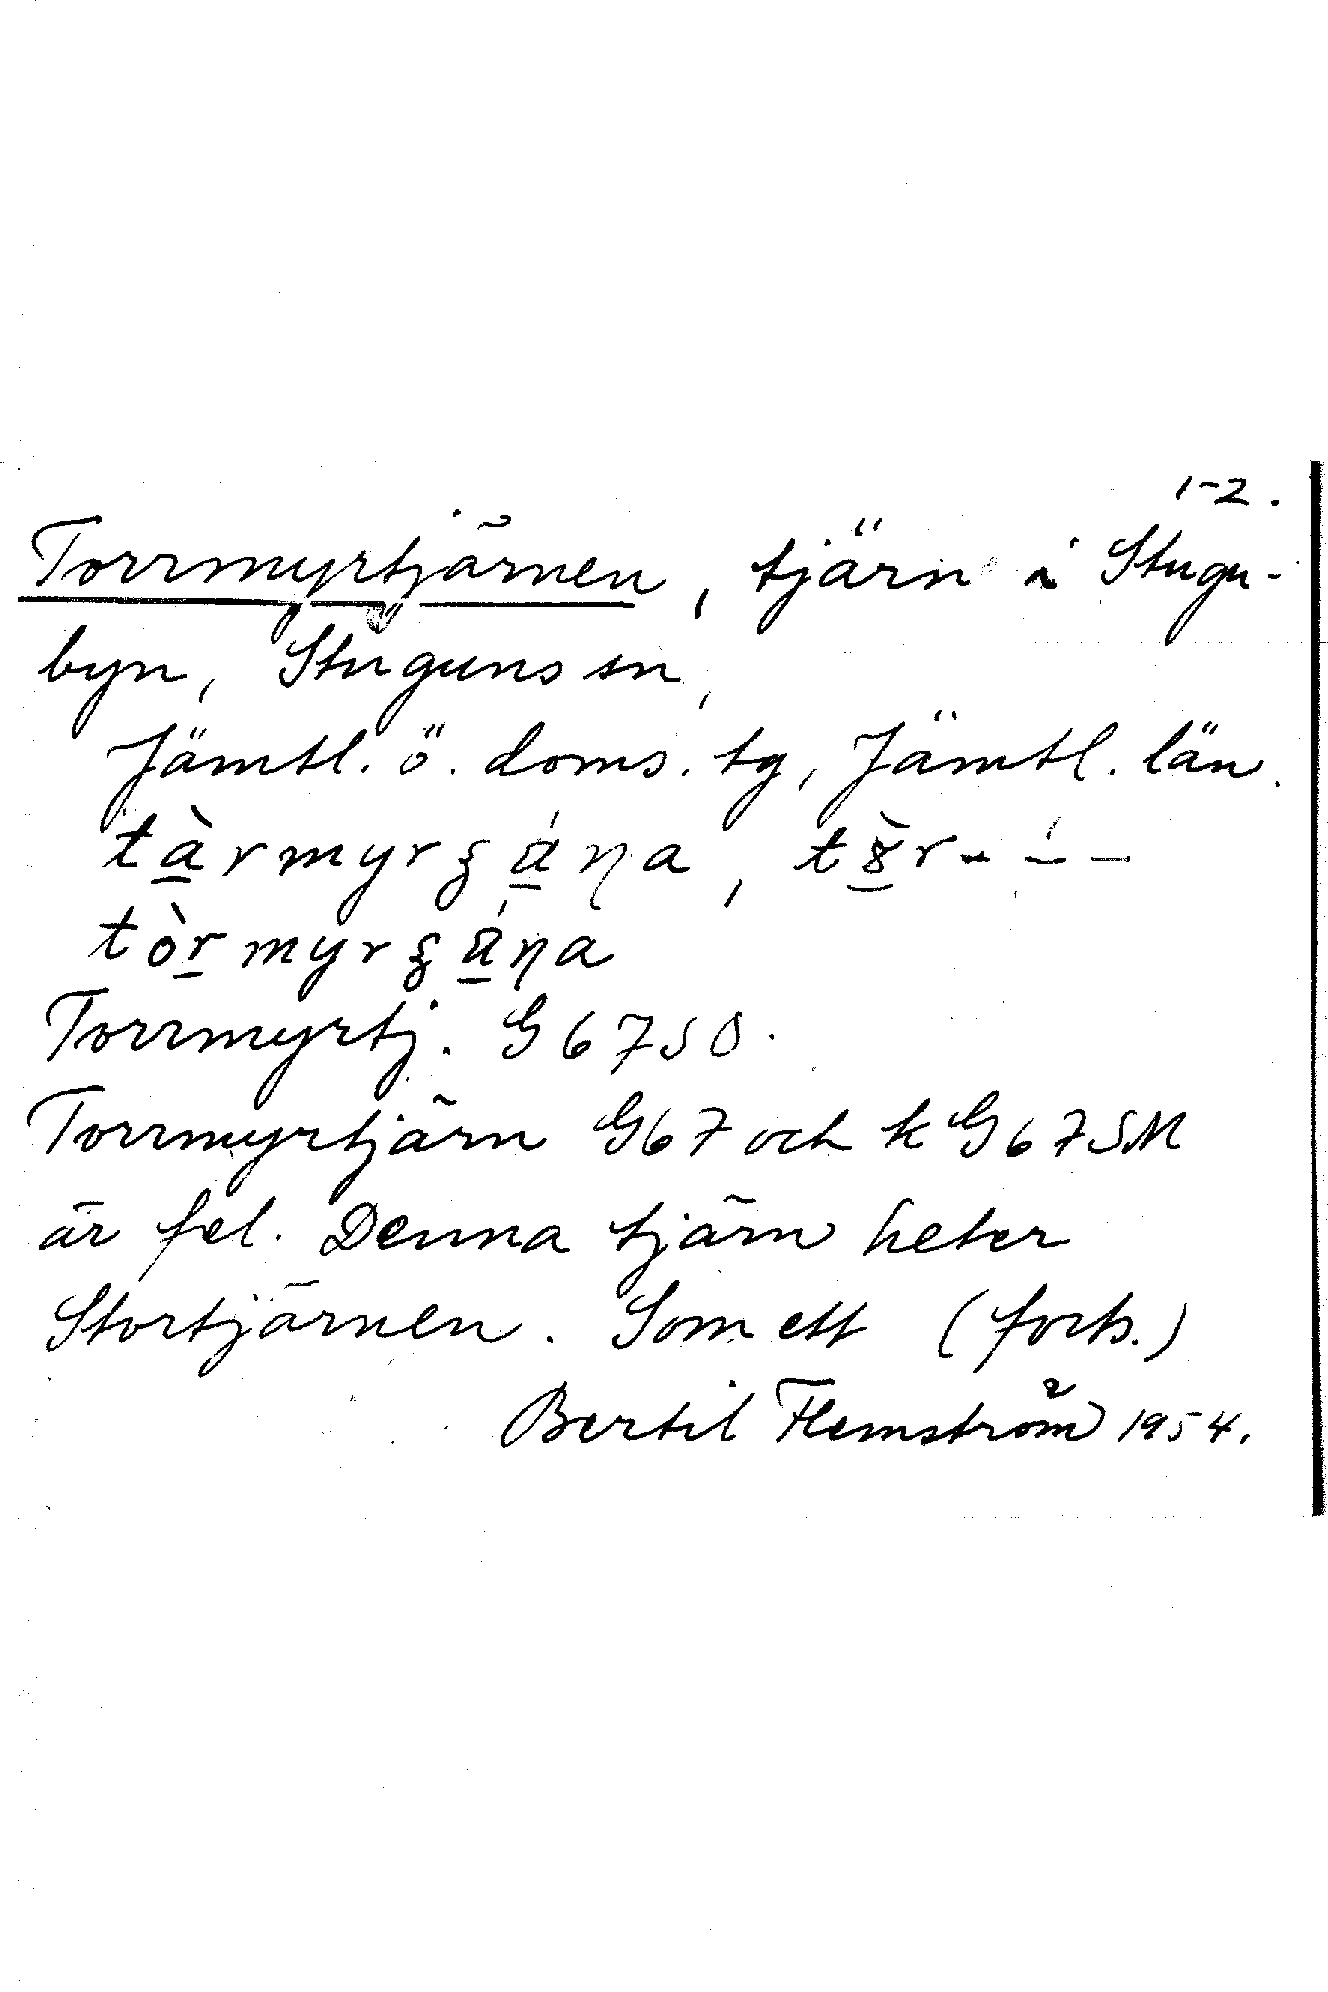 1-2.
Torrmyrtjärnen, tjärn i Stugu-
byn, Stuguns sn,
Jämtl. ö. doms. tg, Jämtl. län.
tòrmyr
Torrmyrtj. G67SO.
Torrmyrtjärn G67 och k G67SM
är fel. Denna tjärn heter
Stortjärnen. Som ett (forts.)
Bertil Flemström 1954.